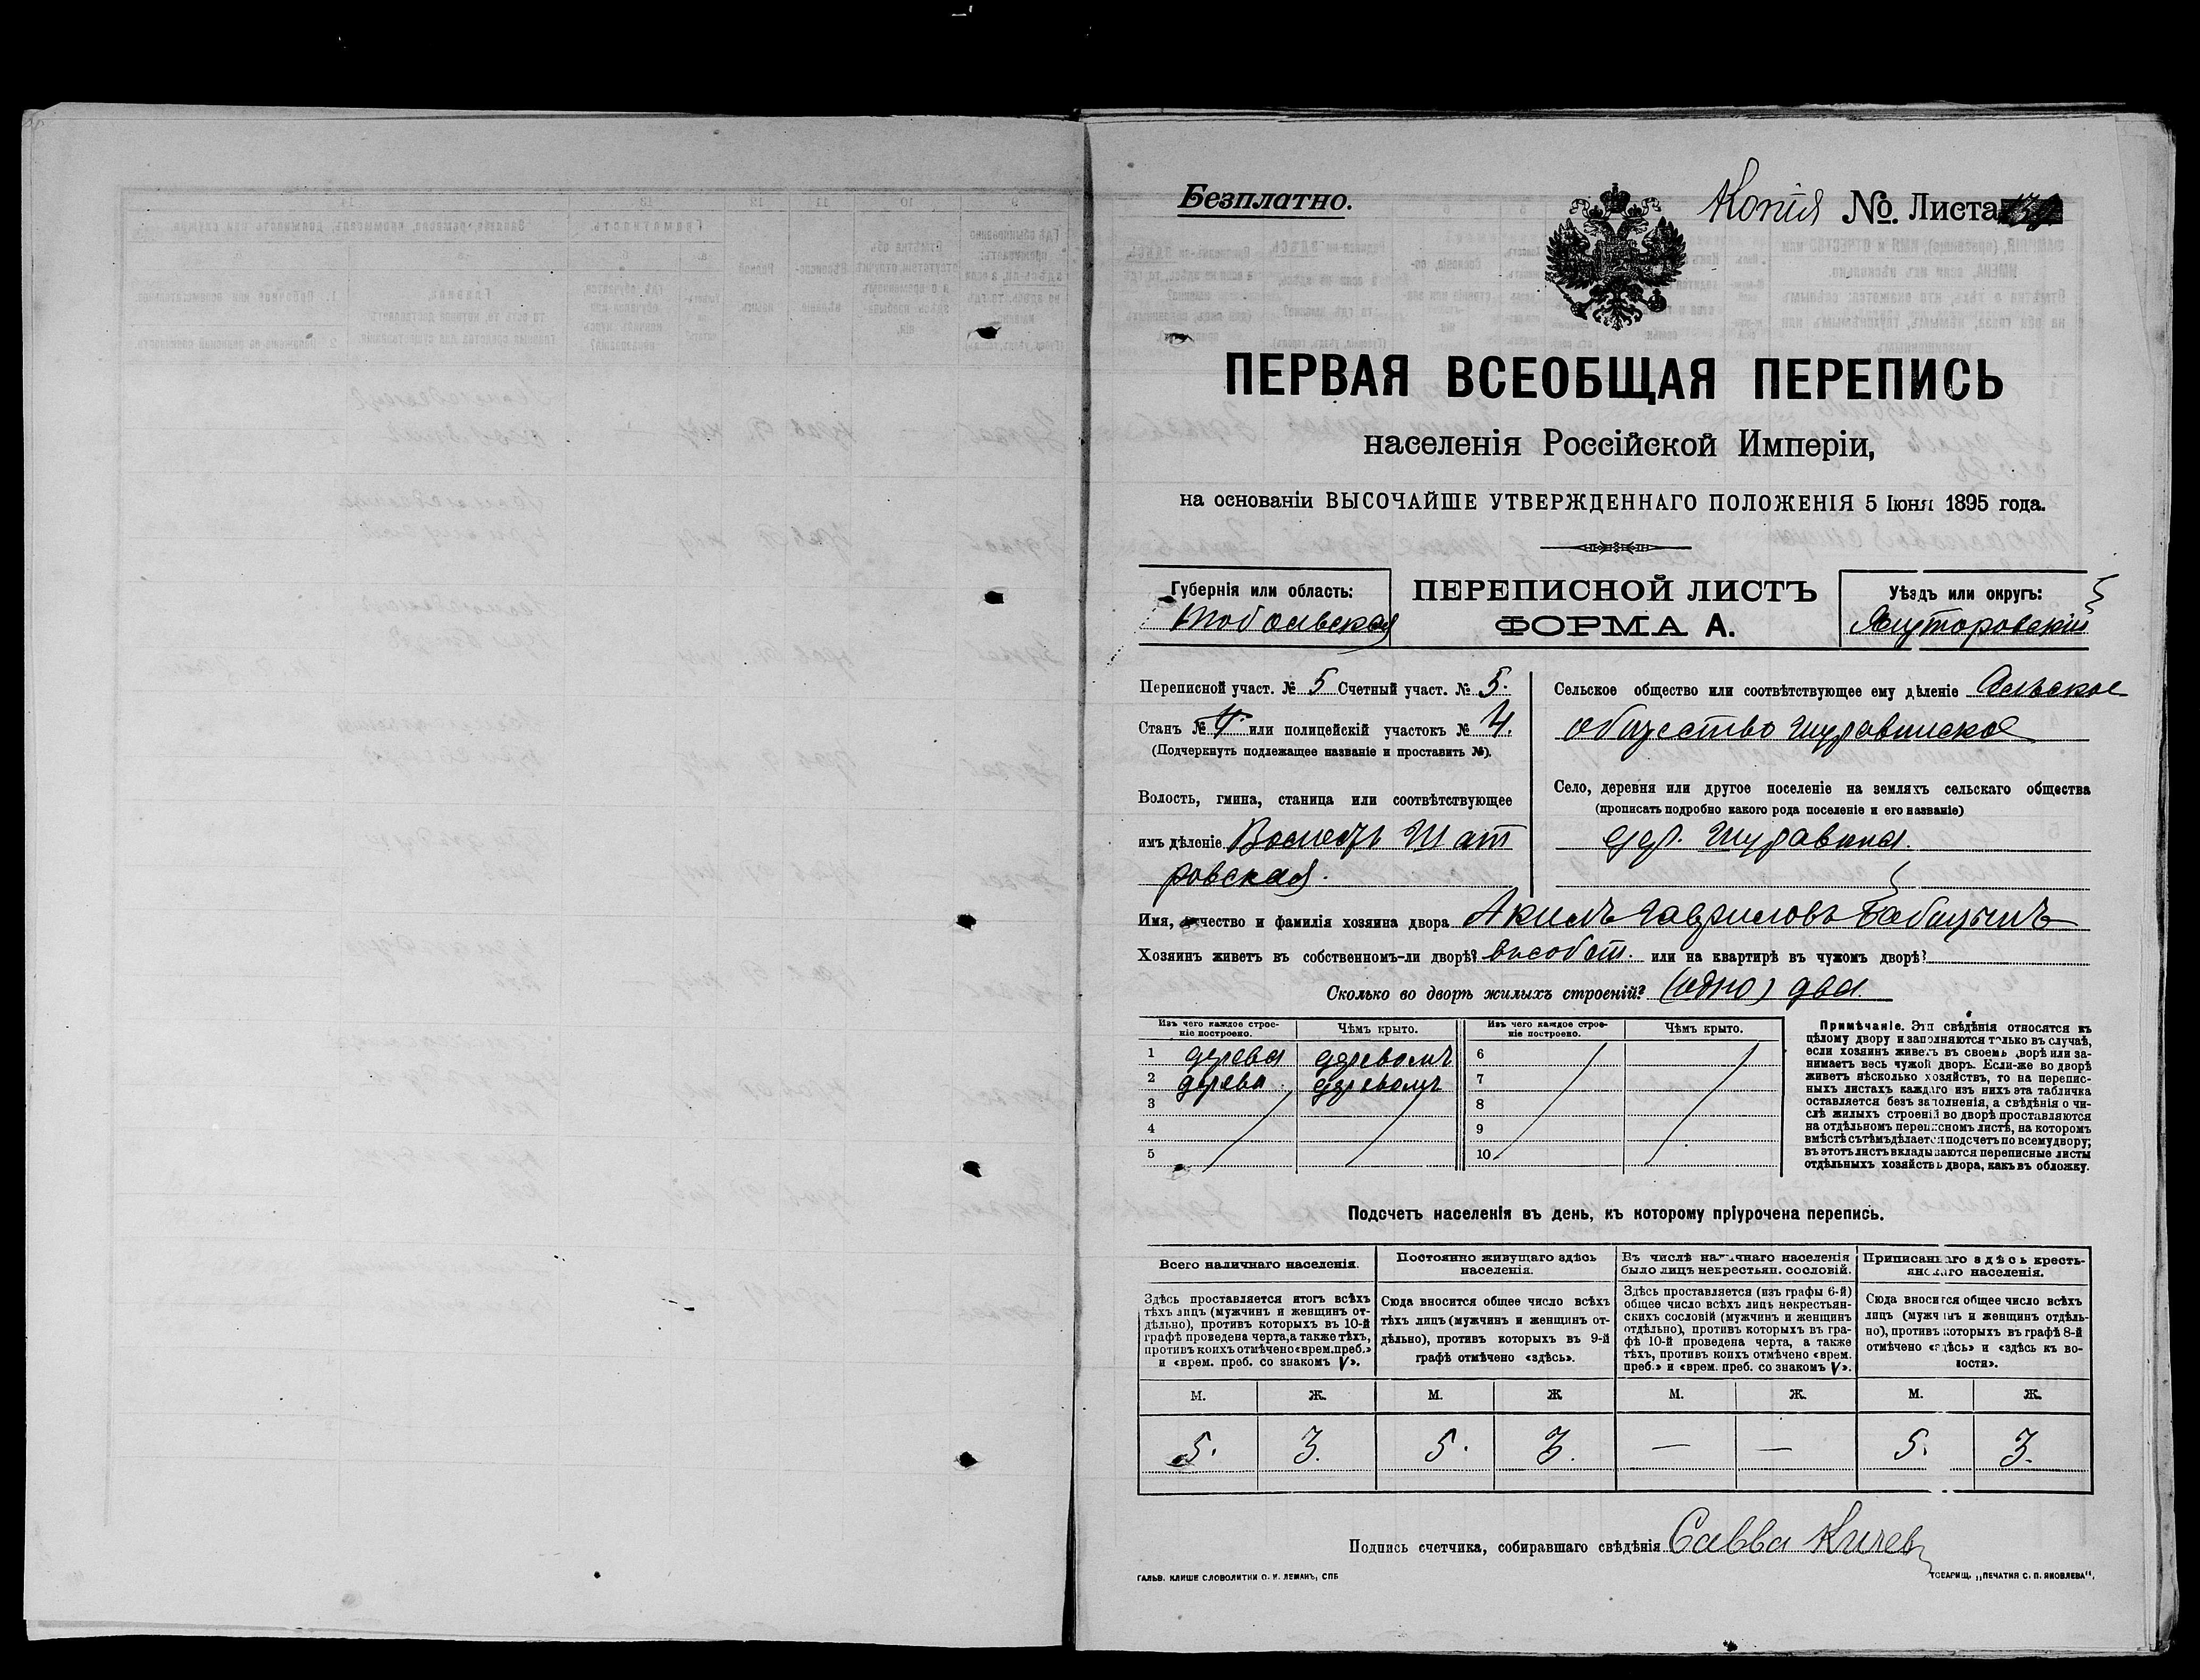 Безплатно.
Копія № Листа
ПЕРВАЯ ВСЕОБЩАЯ ПЕРЕПИСЬ
населенія Россійской Имперіи,
на основаніи ВЫСОЧАЙШЕ УТВЕРЖДЕННАГО ПОЛОЖЕНІЯ 5 Іюня 1895 года.
Губернія или область:
Тобольская
ПЕРЕПИСНОЙ ЛИСТЪ
ФОРМА А.
Уѣздъ или округъ:
Ялуторовскій
Переписной участ. № 5 Счетный участ. № 5.
Станъ № 4. или полицейскій участокъ № 4.
(Подчеркнуть подлежащее названіе и проставить №).
Волость, гмина, станица или соотвѣтствующее
имъ дѣленіе Шат
ровская.
Сельское общество или соотвѣтствующее ему дѣленіе Сельское
общество
Село, деревня или другое поселеніе на земляхъ сельскаго общества
(прописать подробно какого рода поселеніе и его названіе)
дер.
Имя, отчество и фамилія хозяина двора Акимъ Гавриловъ
Хозяинъ живетъ въ собственномъ-ли дворѣ? или на квартирѣ въ чужомъ дворѣ?
Сколько во дворѣ жилыхъ строеній? (одно) два.
Изъ чего каждое строе-
ніе построено.
Чѣмъ крыто.
Изъ чего каждое строе-
ніе построено.
Чѣмъ крыто.
1 дерева деревомъ 6
2 дерева деревомъ 7
3 8
4 9
5 10
Примѣчаніе. Эти свѣдѣнія относятся къ
цѣлому двору и заполняются только въ случаѣ,
если хозяинъ живетъ въ своемъ дворѣ или за-
нимаетъ весь чужой дворъ. Если-же во дворѣ
живетъ нѣсколько хозяйствъ, то на перепис-
ныхъ листахъ каждаго изъ нихъ эта табличка
оставляется безъ заполненія, а свѣдѣнія о чи-
слѣ жилыхъ строеній во дворѣ проставляются
на отдѣльномъ переписномъ листѣ, на которомъ
вмѣстѣ съ тѣмъ дѣлается подсчетъ по всему двору;
въ этотъ листъ вкладываются переписные листы
отдѣльныхъ хозяйствъ двора, какъ въ обложку.
Подсчетъ населенія въ день, къ которому пріурочена перепись.
Всего наличнаго населенія.
Здѣсь проставляется итогъ всѣхъ
тѣхъ лицъ (мужчинъ и женщинъ от-
дѣльно), противъ которыхъ въ 10-й
графѣ проведена черта, а также тѣхъ,
противъ коихъ отмѣчено «врем. преб.»
и «врем. преб. со знакомъ V».
Постоянно живущаго здѣсь
населенія.
Сюда вносится общее число всѣхъ
тѣхъ лицъ (мужчинъ и женщинъ от-
дѣльно), противъ которыхъ въ 9-й
графѣ отмѣчено «здѣсь».
Въ числѣ наличнаго населенія
было лицъ некрестьян. сословій.
Здѣсь проставляется (изъ графы 6-й)
общее число всѣхъ лицъ некрестьян-
скихъ сословій (мужчинъ и женщинъ
отдѣльно), противъ которыхъ въ гра-
фѣ 10-й проведена черта, а также
тѣхъ, противъ коихъ отмѣчено «врем.
преб.» и «врем. преб. со знакомъ V».
Приписаннаго здѣсь кресть-
янскаго населенія.
Сюда вносится общее число всѣхъ
лицъ (мужчинъ и женщинъ отдѣль-
но), противъ которыхъ въ графѣ 8-й
отмѣчено «здѣсь» и «здѣсь къ во-
лости».
М. Ж. М. Ж М. Ж. М. Ж.
5. 3. 5. 3. — — 5. 3.
Подпись счетчика, собиравшаго свѣдѣнія Савва
ГАЛЬВ. КЛИШЕ СЛОВОЛИТНИ О. И. ЛЕМАНЪ, СПБ
ТОВАРИЩ. „ПЕЧАТНЯ С. П. ЯКОВЛЕВА“.